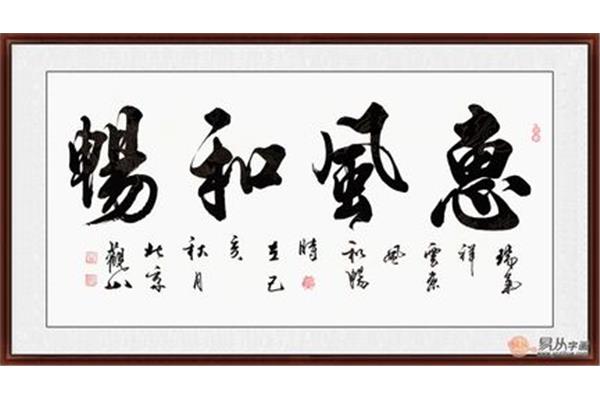 惠風和暢
瑞氣
祥
雲东
風
和暢
時
在己
亥
秋月
北京
觀山
易从字画